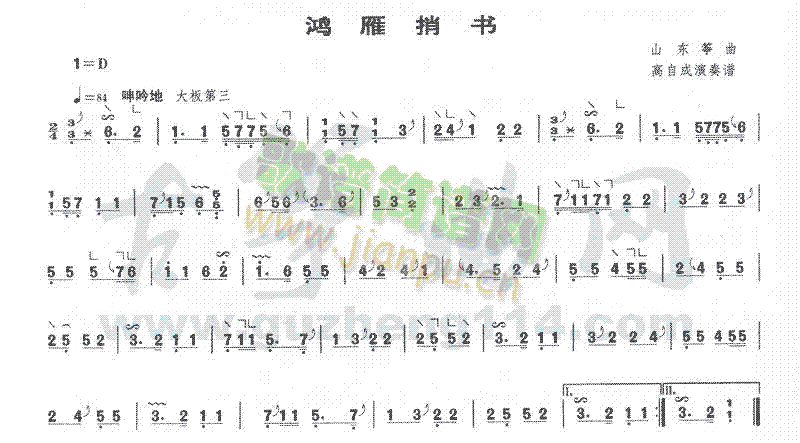 鸿雁捎书
1=D
山东筝曲
高自成演奏谱
♩=84 呻吟地 大板第三
2/4 3 3 * 6. 2 | 1. 1 5775(6 | 1 1 57 1 1 3 | 24 1 2 2 | 3 3 * 6. 2 | 1. 1 5775(6 |
1 1 57 1 1 | 7 15 6 5 6 | 6 56 (3. 6 | 5 3 2 2 | 2 3 2. 1 | 7 1171 2 2 | 3 2 2 3 |
5 5 5 (76 | 1 1 6 2 | 1. 6 5 5 | 4 2 4 1 | (4. 5 2 4 | 5 5 4 55 | 2 (4 5 5 |
2 5 5 2 | 3. 2 1 1 | 7 11 5. 7 | 1 3 2 2 | 2 5 5 2 | 3. 2 1 1 | 3 2 2 4 | 5 5 4 55 |
2 4 5 5 | 3. 2 1 1 | 7 11 5. 7 | 1 3 2 2 | 2 5 5 2 | I. 3. 2 1 1 :| II. 3. 2 1 1 |
歌谱简谱网
www.jianpu.cn
古筝网
www.guzheng114.com